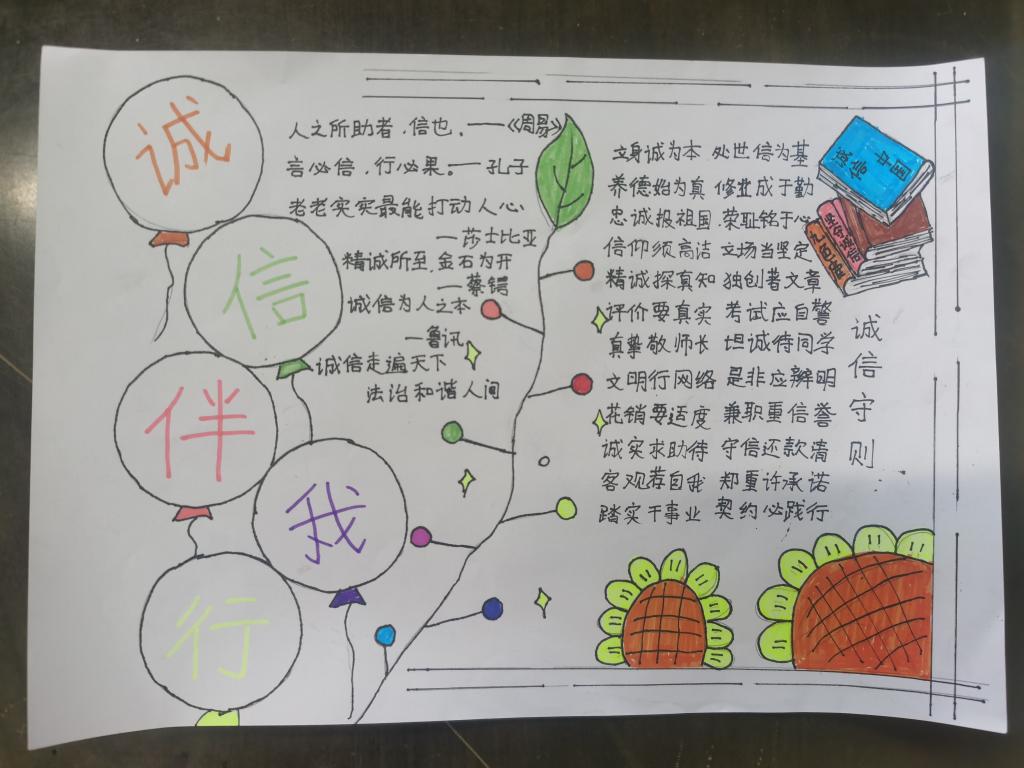 诚
信
伴
我
行
人之所助者,信也.——《周易》
言必信,行必果。——孔子
老老实实最能打动人心
—莎士比亚
精诚所至.金石为开
—蔡锷
诚信为人之本
—鲁讯
诚信走遍天下
法治和谐人间
立身诚为本 处世信为基
养德始为真 修业成于勤
忠诚报祖国 荣耻铭于心
信仰须高洁 立场当坚定
精诚探真知 独创著文章
评价要真实 考试应自警
真挚敬师长 坦诚待同学
文明行网络 是非应辨明
花销要适度 兼职重信誉
诚实求助待 守信还款清
客观荐自我 郑重许承诺
踏实干事业 契约必践行
诚信守则
诚信
中国